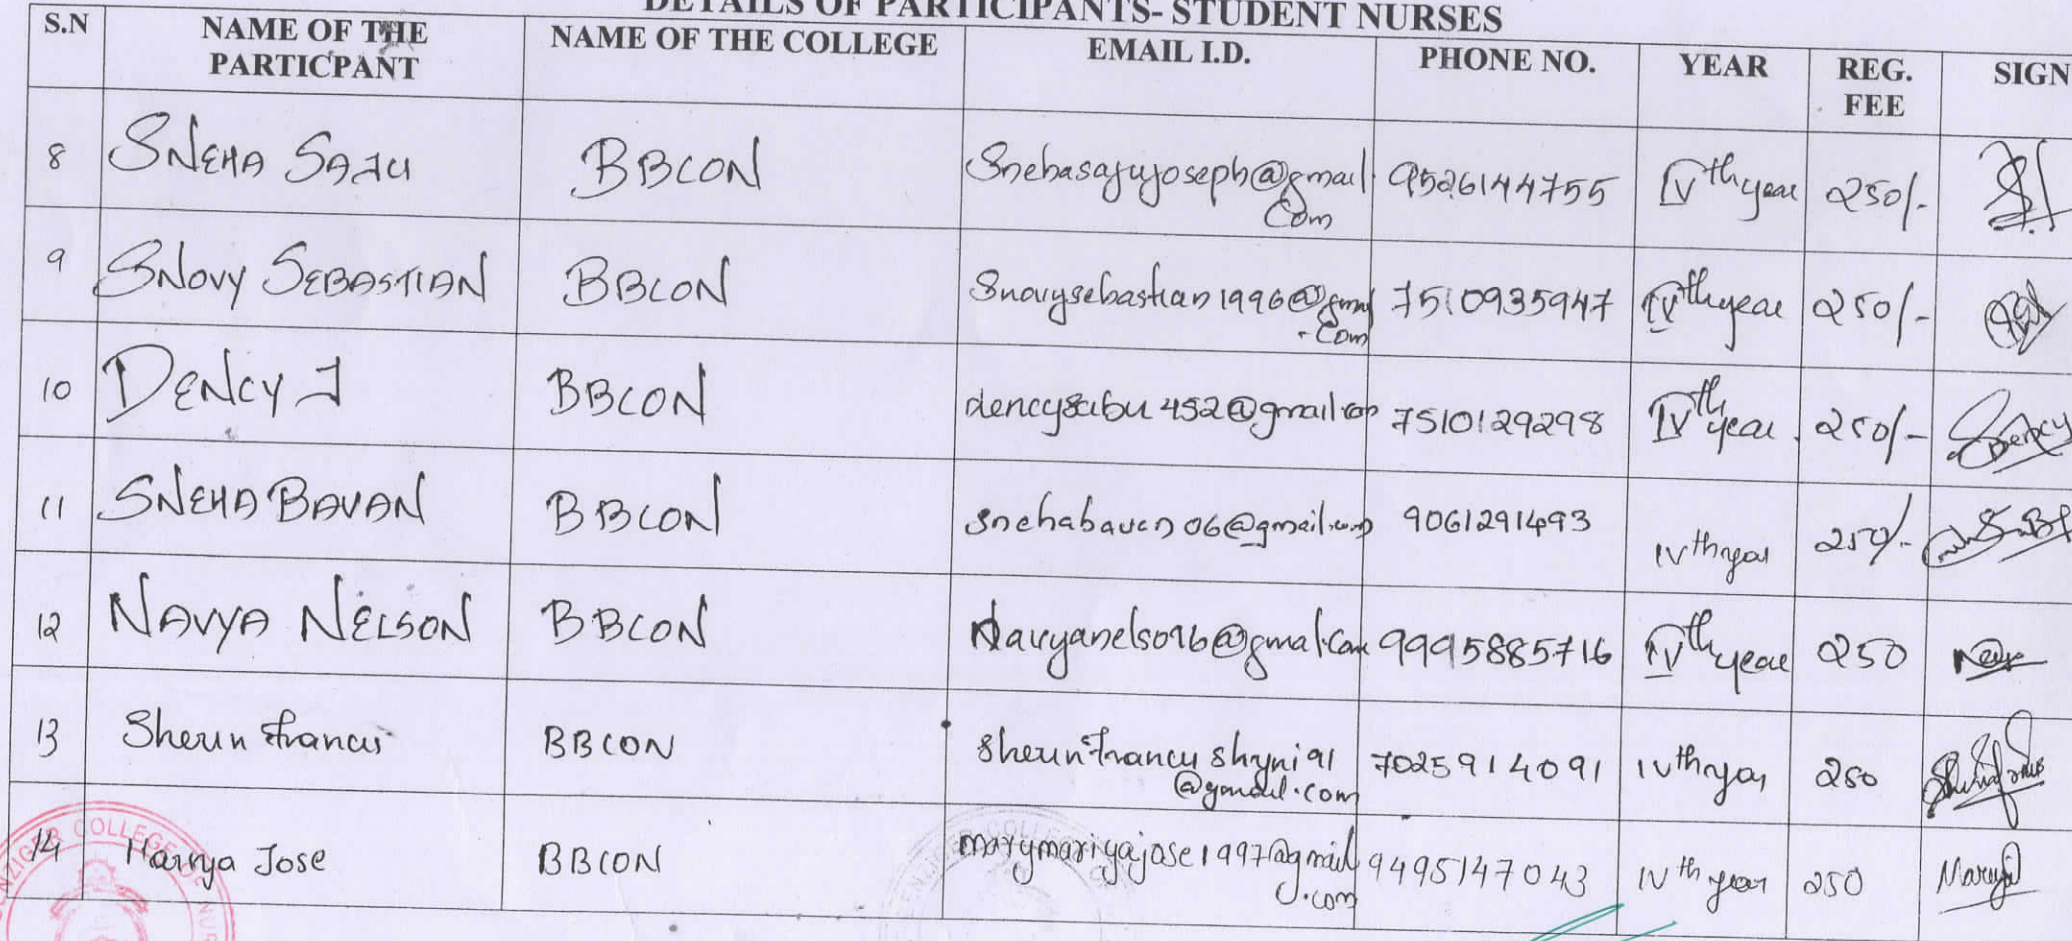 DETAILS OF PARTICIPANTS- STUDENT NURSES
S.N NAME OF THE PARTICPANT NAME OF THE COLLEGE EMAIL I.D. PHONE NO. YEAR REG. FEE SIGN
8 SNEHA SAJU BBCON Snehasajujoseph@gmail.com 9526144755 IVth year 250/-
9 SNOVY SEBASTIAN BBCON Snovysebastian1996@gmail.com 7510935947 IVth year 250/-
10 DENCY J BBCON dencysabu452@gmail.com 7510129298 IVth year 250/- Dency
11 SNEHA BAVAN BBCON snehabavan06@gmail.com 9061291493 IVth year 250/-
12 NAVYA NELSON BBCON 9995885716 IVth year 250
13 Sherin Francis BBCON 7025914091 IVth year 250
14 Mariya Jose BBCON marymariyajose1997@gmail.com 9495147043 IVth year 250 Mariya
COLLEGE OF NUR